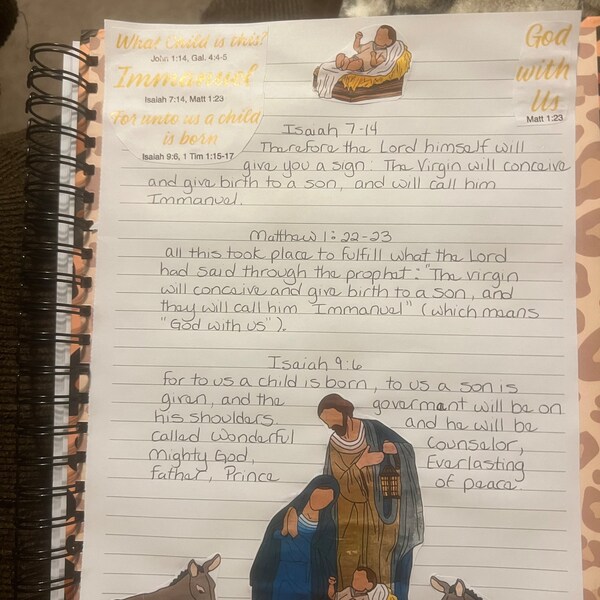 What Child is this?
John 1:14, Gal. 4:4-5
Immanuel
Isaiah 7:14, Matt 1:23
For unto us a child
is born
Isaiah 9:6, 1 Tim 1:15-17
God
with
Us
Matt 1:23
Isaiah 7-14
Therefore the Lord himself will
give you a sign: The Virgin will conceive
and give birth to a son, and will call him
Immanuel.
Matthew 1:22-23
all this took place to fulfill what the Lord
had said through the prophet: "The virgin
will conceive and give birth to a son, and
they will call him Immanuel" (which means
"God with us").
Isaiah 9:6
for to us a child is born, to us a son is
given, and the goverment will be on
his shoulders. and he will be
called Wonderful Counselor,
Mighty God, Everlasting
father, Prince of peace.